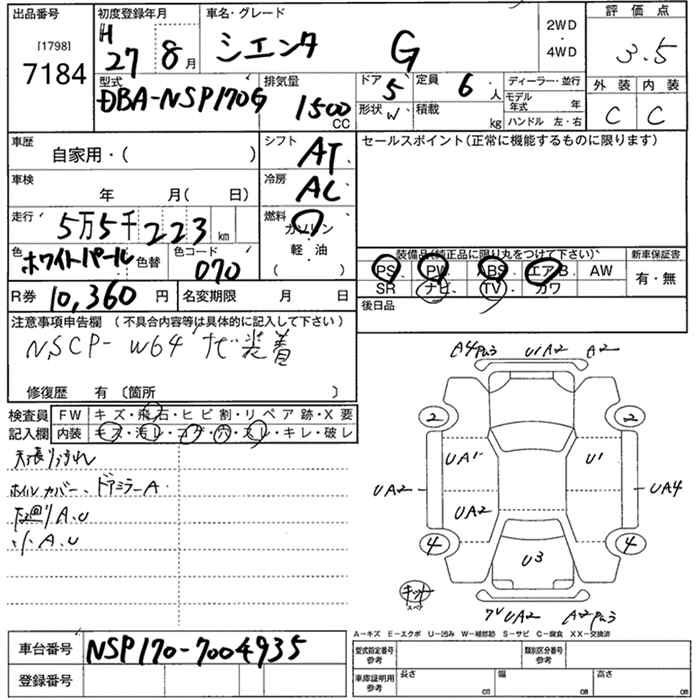 出品番号 初度登録年月 車名・グレード 2WD ・ 4WD 評価点
[1798] 7184 H 27 8月 シエンタ G 3.5
型式 排気量 ドア 5 定員 6人 ディーラー・並行 外装 内装
DBA-NSP170G 1500 CC 形状 W 積載 kg モデル年式 年 C C
ハンドル 左・右
車歴 シフト AT セールスポイント(正常に機能するものに限ります)
自家用・( )
車検 冷房 AC
年 月( 日)
走行 5万5千223km 燃料 ガソリン・軽油
色 ホワイトパール 色替 色コード 070 ( )
装備品(純正品に限り丸をつけて下さい) 新車保証書
PS. PW. ABS. エアB. AW 有・無
SR ナビ. TV. カワ
R券 10,360円 名変期限 月 日 後日品
注意事項申告欄 (不具合内容等は具体的に記入して下さい)
NSCP-W64ナビ装着
修復歴 有〔箇所 〕
検査員 FW キズ・飛石・ヒビ割・リペア跡・X要
記入欄 内装 キズ・汚レ・コゲ・穴・スレ・キレ・破レ
ホイルカバー、ドアミラーA
下廻りA.U
小A.U
A2
2 2
UA1 U1
UA2 UA4
UA2
4 4
U3
キット
UA2
A-キズ E-エクボ U-凹み W-補修跡 S-サビ C-腐食 XX-交換済
車台番号 NSP170-7004935 型式指定番号 参考 類別区分番号 参考
登録番号 車庫証明用 参考 長さ cm 幅 cm 高さ cm